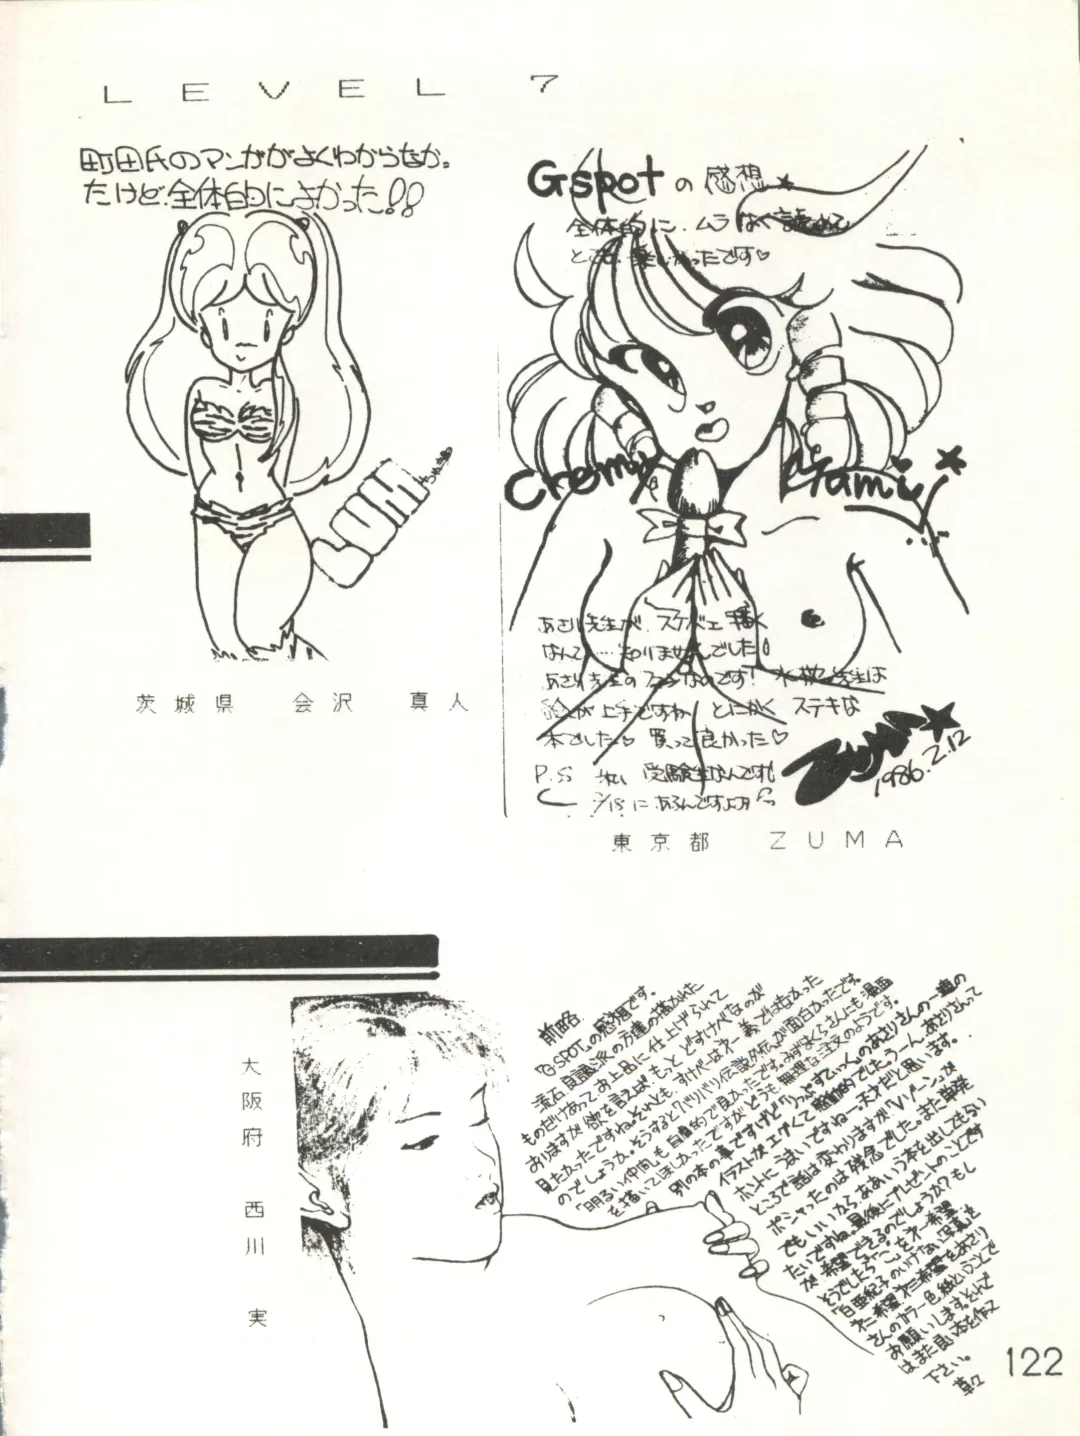 LEVEL 7
町田氏のマンガがよくわからなか。
だけど全体的によかった!!
YUMIちゃま
茨城県 会沢 真人
Gspotの感想★
全体的に、ムラなく読めて
とても楽しかったです♡
Cremy Yami
あさり先生が、スケベェ描く
なんて……知りませんでした!
あさり先生のファンなのです! 水松先生は
絵が上手ですね とにかく ステキな
本でした♡ 買って良かった♡
P.S 私、受験生なんです!
2/18にあるんですよ
Zuma★
1986.2.12
東京都 ZUMA
大阪府 西川 実
前略
「G・SPOT」の感想です。
流石良識派の方達の描かれた
ものだけあってお上品に仕上げられて
おりますが欲を言えば、もっとどすけべなのが
見たかったですね。それとも、すけべーは第一義ではなかった
のでしょうか。そうするとワバリバリ伝説外伝が面白かったです。
「明るい仲間」も自虐的で良かったです。みずまくらさんにも漫画
を描いてほしかったですがどうも無理な注文のようです。
別の本の事ですけど「りっぷすてぃっく」のあさりさんの一連の
イラストがエグくて感動的でした。うーん、あさりさんって
ホントにうまいですねー、天才だと思います。
ところで話は変わりますが「Vゾーン」が
ポシャったのは残念でした。また単発
でもいいから、ああいう本を出してもらい
たいですね。最後にプレゼントのことです
が希望できるのでしょうか?もし
そうでしたら「こ」を第一希望、
「白亜紀子のいけない写真」を
第二希望、第三希望をあさり
さんのカラー色紙ということで
お願いします。それで
はまた良い本を作って
下さい。
草々
122